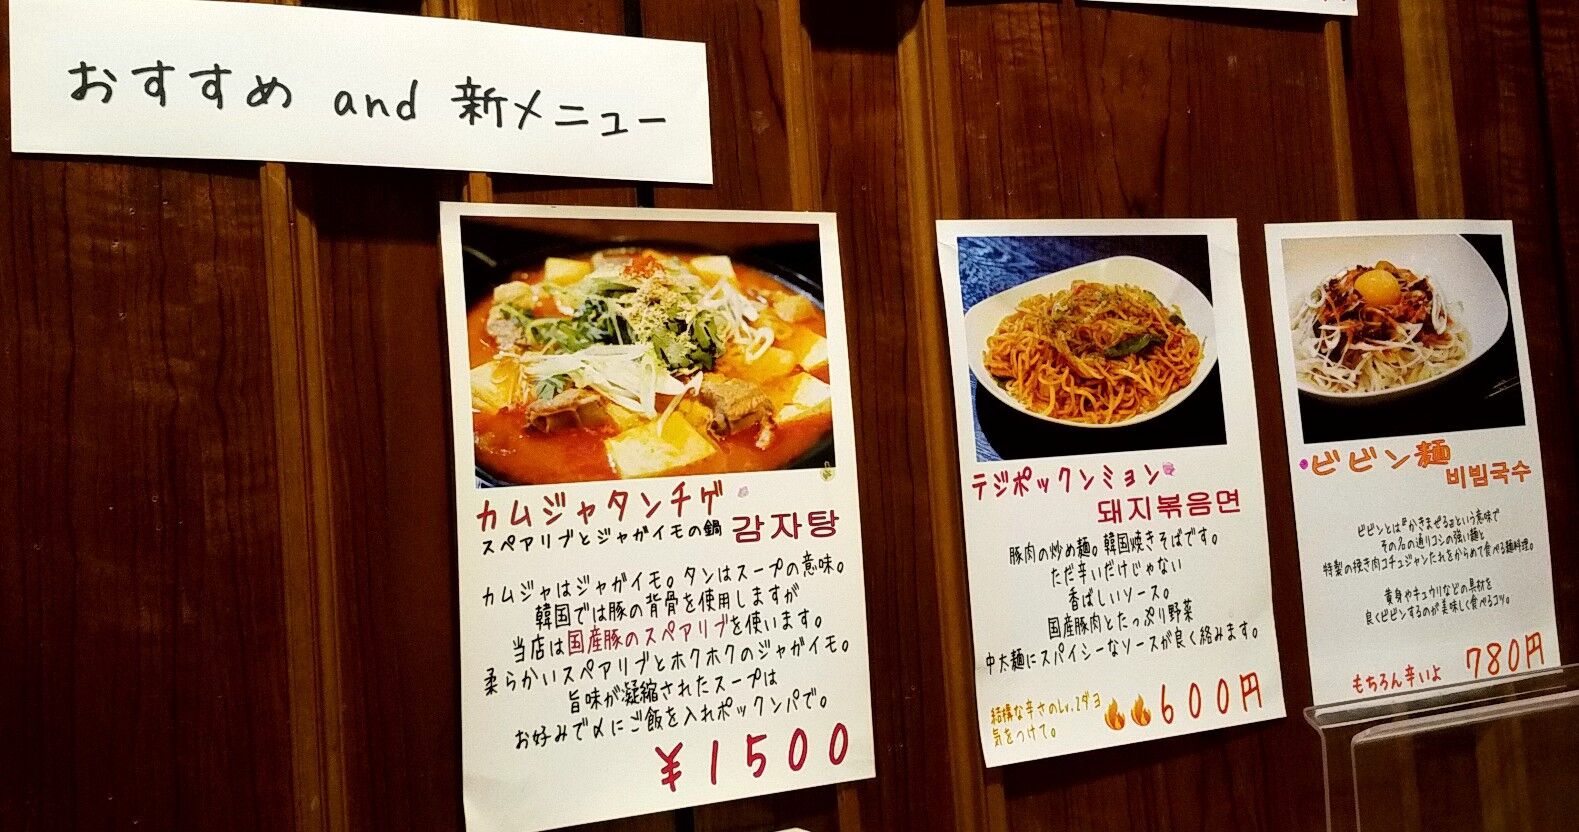 おすすめ and 新メニュー
カムジャタンチゲ
スペアリブとジャガイモの鍋 감자탕
カムジャはジャガイモ。タンはスープの意味。
韓国では豚の背骨を使用しますが
当店は国産豚のスペアリブを使います。
柔らかいスペアリブとホクホクのジャガイモ。
旨味が凝縮されたスープは
お好みで〆にご飯を入れポックンパで。
¥1500
テジポックンミョン
돼지볶음면
豚肉の炒め麺。韓国焼きそばです。
ただ辛いだけじゃない
香ばしいソース。
国産豚肉とたっぷり野菜
中太麺にスパイシーなソースが良く絡みます。
結構な辛さのLv.2ダヨ
気をつけて。
600円
ビビン麺
비빔국수
ビビンとは『かきまぜる』という意味で
その名の通りコシの強い麺と
特製の挽き肉コチュジャンたれをからめて食べる麺料理。
黄身やキュウリなどの具材を
良くビビンするのが美味しく食べるコツ。
もちろん辛いよ 780円